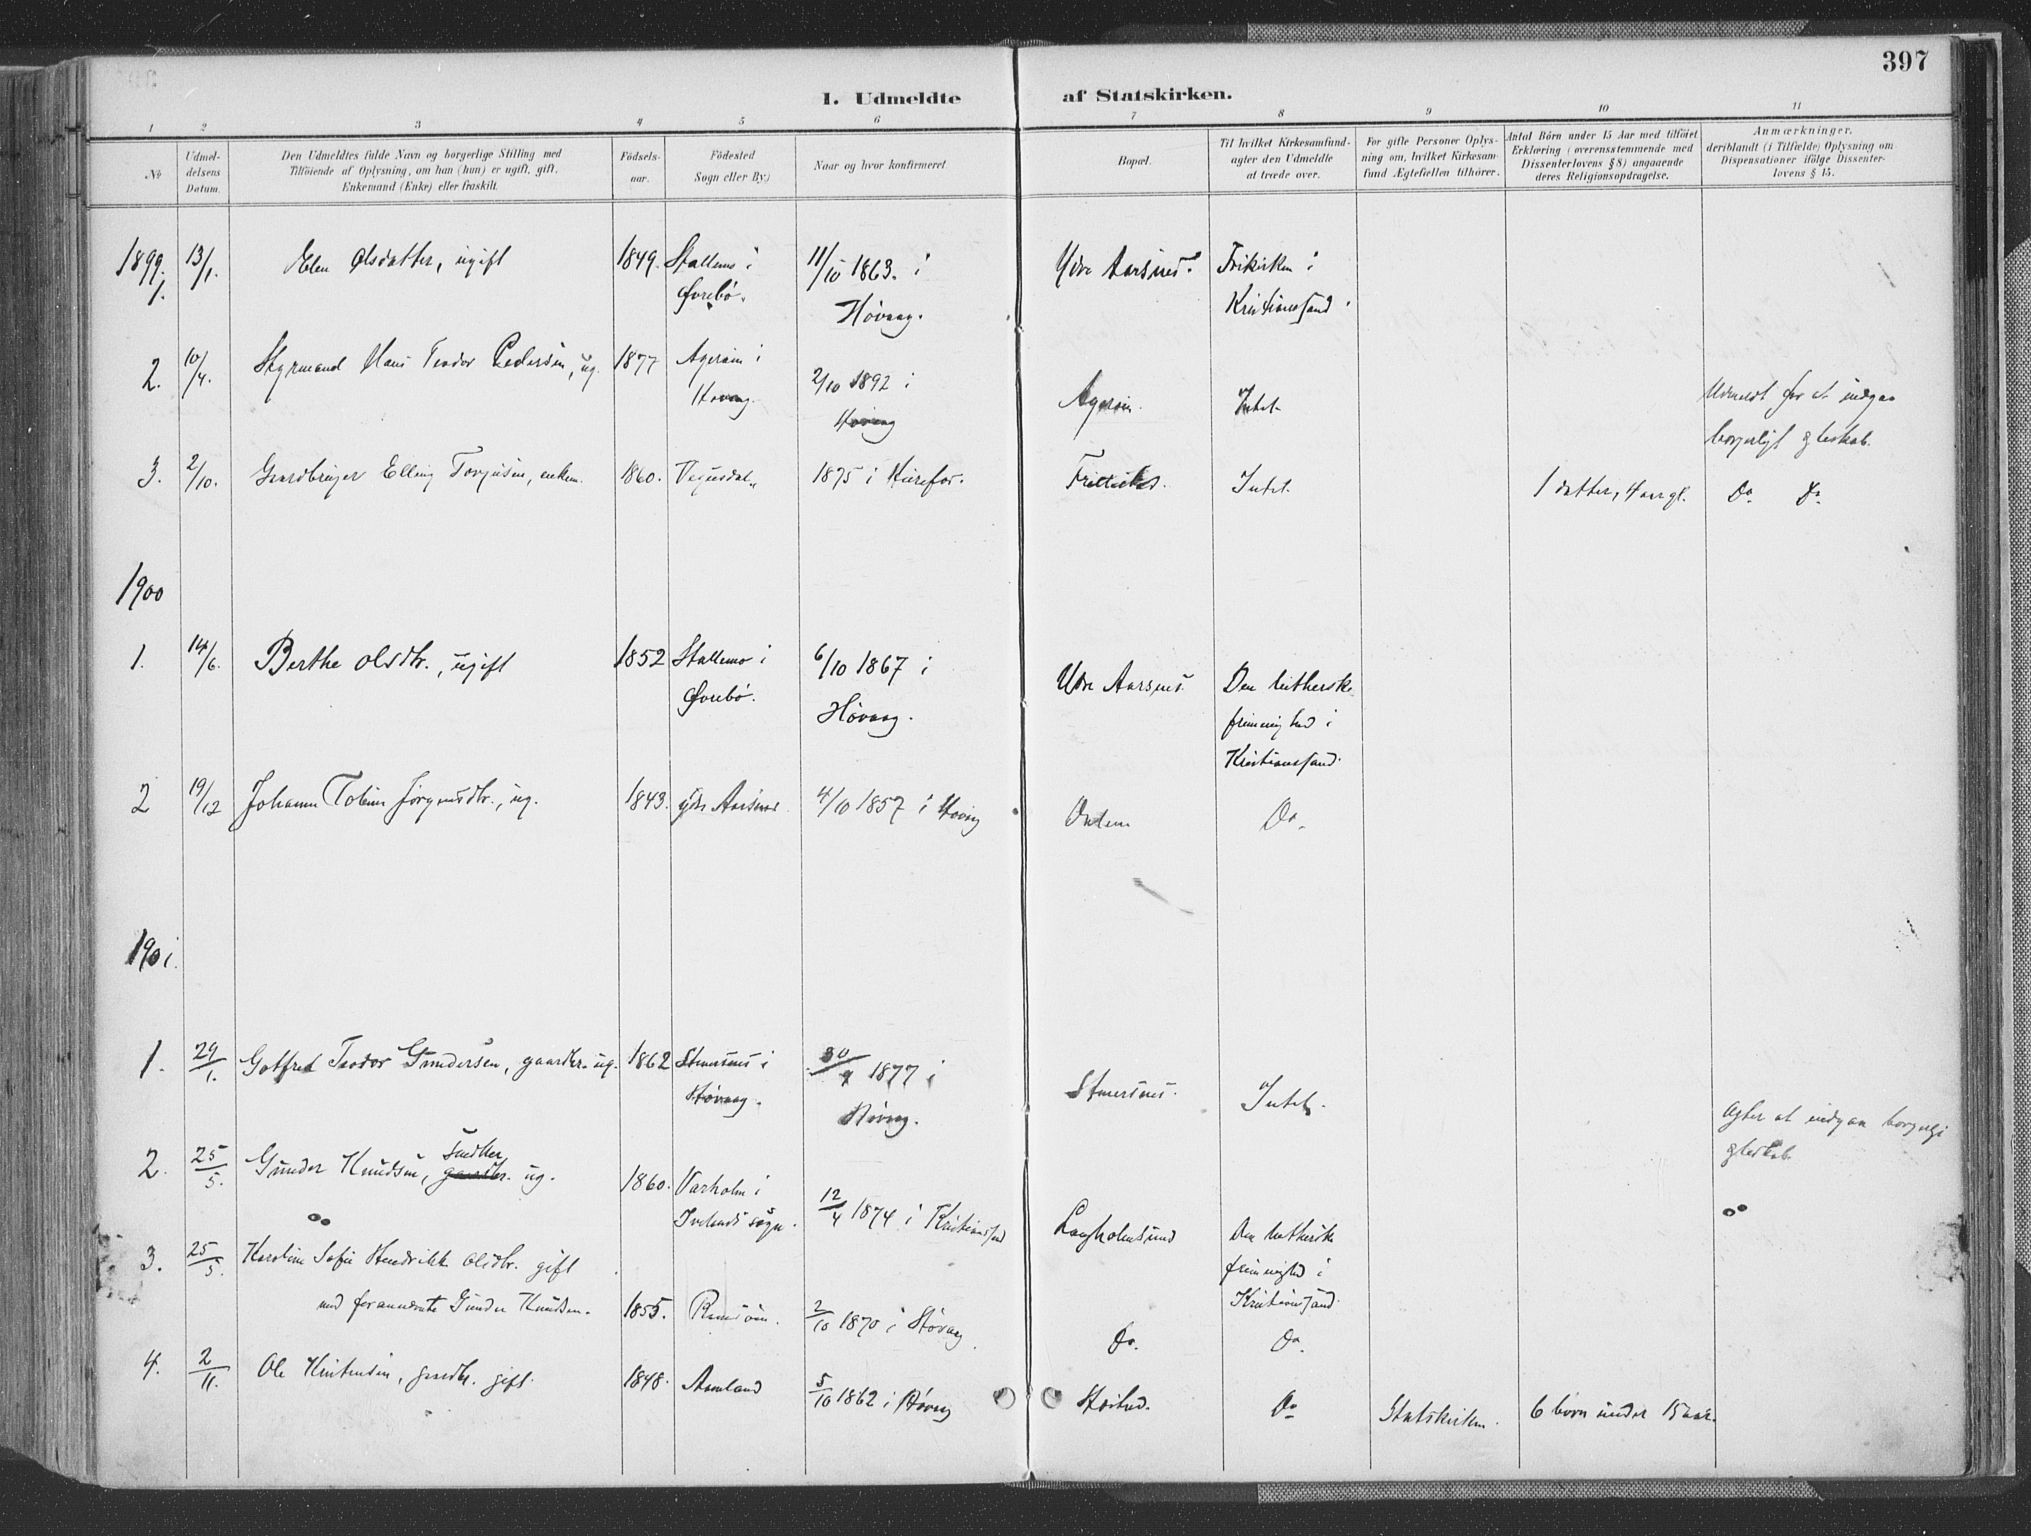 397
I. Udmeldte af Statskirken.
1 2 3 4 5 6 7 8 9 10 11
No
Udmel-
delsens
Datum.
Den Udmeldtes fulde Navn og borgerlige Stilling med
Tilföiende af Oplysning, om han (hun) er ugift, gift,
Enkemand (Enke) eller fraskilt.
Födsels-
aar.
Födested
Sogn eller By.)
Naar og hvor konfirmeret.
Bopæl.
Til hvilket Kirkesamfund
agter den Udmeldte
at træde over.
For gifte Personer Oplys-
ning om, hvilket Kirkesam-
fund Ægtefællen tilhörer.
Antal Börn under 15 Aar med tilföiet
Erklæring (overensstemmende med
Dissenterlovens § 8) angaaende
deres Religionsopdragelse.
Anmærkninger,
deriblandt (i Tilfælde) Oplysning om
Dispensationer ifölge Dissenter-
lovens § 15.
1899.
1. 13/1. Elen Olsdatter, ugift 1849. Stallemo i
Øvrebø.
11/10 1863. i
Høvaag.
Ydre Aarsnes. Frikirken i
Kristianssand.
2. 10/4. Styrmand Hans Teodor Pedersen, ug. 1877 Agerøin i
Høvaag.
2/10 1892 i
Høvaag
Agerøin. Intet.
Udmeldt for at indgaa
borgerligt ægteskab.
3. 2/10. Gaardbruger Elling Torjusen, enkem. 1860. Vegusdal. 1875 i Herefos. Intet. 1 datter, 4 aar gl. Do. Do.
1900
1. 14/6. Berthe Olsdtr., ugift 1852 Stallemo i
Øvrebø.
6/10 1867 i
Høvaag.
Ydre Aarsnes. Den lutherske
frimenighed i
Kristianssand.
2 19/12 Johanne Tobine Jørgensdtr., ug. 1843. ydre Aarsnes. 4/10 1857 i Høvaag Do.
1901.
1. 29/1. Gotfred Teodor Gundersen, gaardbr. ug. 1862 Stuersnes i
Høvaag.
30/9 1877 i
Høvaag.
Stuersnes. Intet.
Agter at indgaa borgerligt
ægteskab.
2. 25/5. Gunder Knudsen, Snedker gaardbr. ug. 1860. Varholm i
Ivelands sogn.
12/4 1874 i Kristianssand
Langholmsund Den lutherske
frimenighed i
Kristianssand.
3. 25/5. Karoline Sofie Hendrikke Olsdtr. gift
med forannevnte Gunder Knudsen. 1855. Ramsøin. 2/10 1870 i Høvaag.
Do. Do.
4. 2/11. Ole Kristensen, gaardbr. gift. 1848. Aamland 5/10 1862 i Høvaag Do Statskirken. 6 børn under 15 aar.